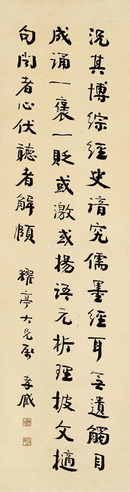 況其博綜經史清究儒墨經耳無遺觸目
成誦一褒一貶或激或揚語元析理披文摘
句聞者心伏聽者解頤
耀亭大兄屬 李威